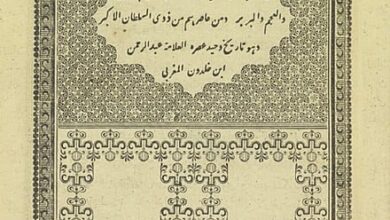 والعجم والبربر ومن عاصرهم من ذوى السلطان الاكبر
وهو تاريخ وحيد عصره العلامة عبد الرحمن
ابن خلدون المغربى